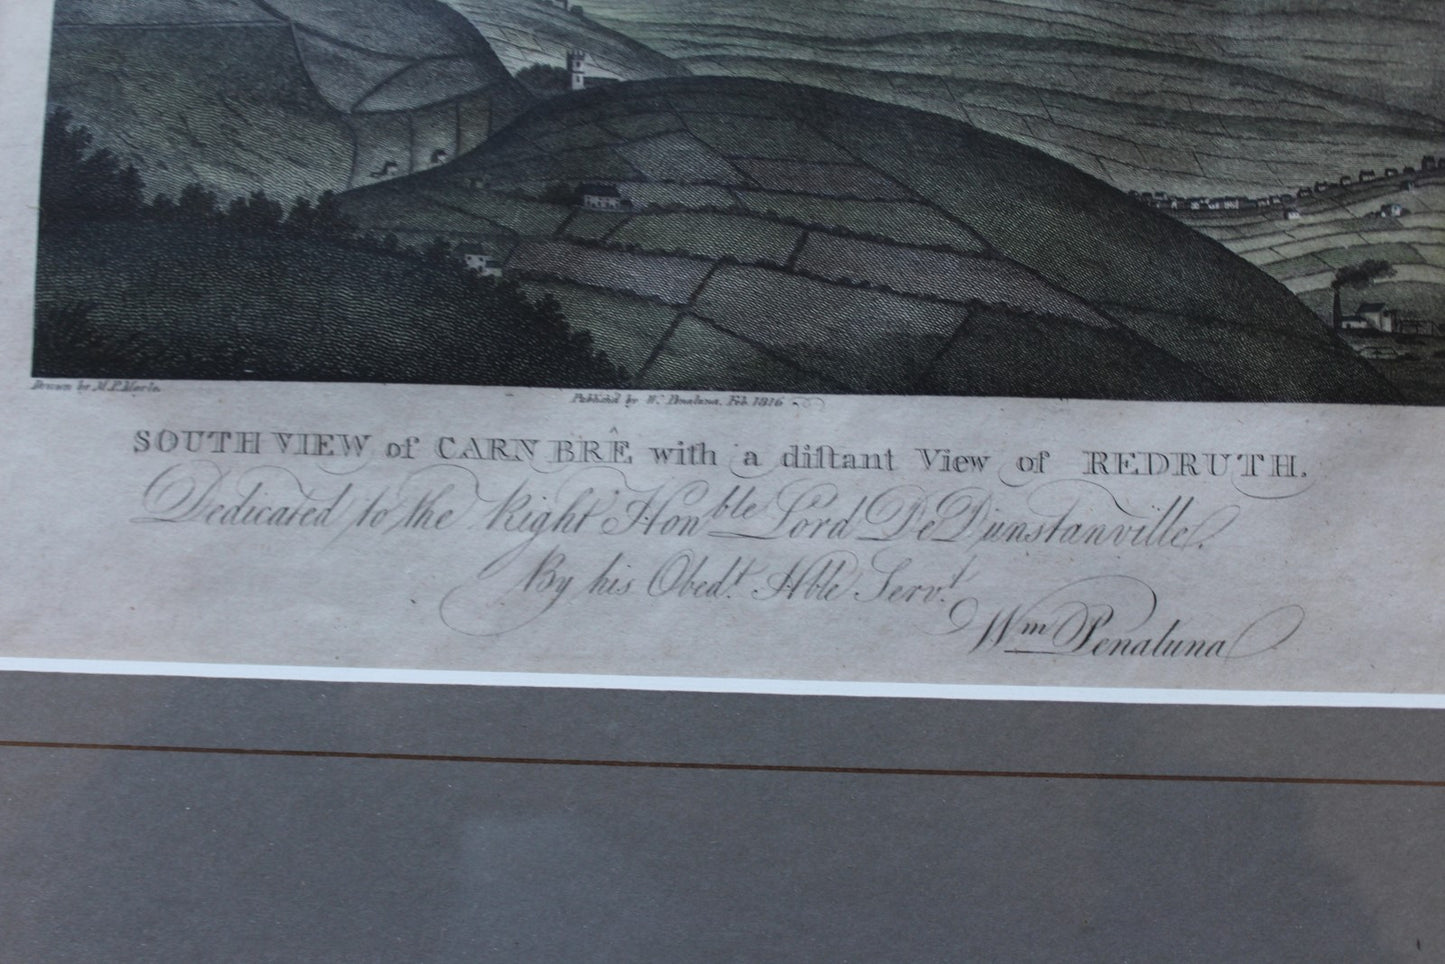 Drawn by M. P. Merle.
Publish'd by Wm. Penaluna, Feb. 1816
SOUTH VIEW of CARN BRÊ with a diſtant View of REDRUTH.
Dedicated to the Right Honble Lord De Dunstanville.
By his Obedt. Hble Servt.
Wm Penaluna